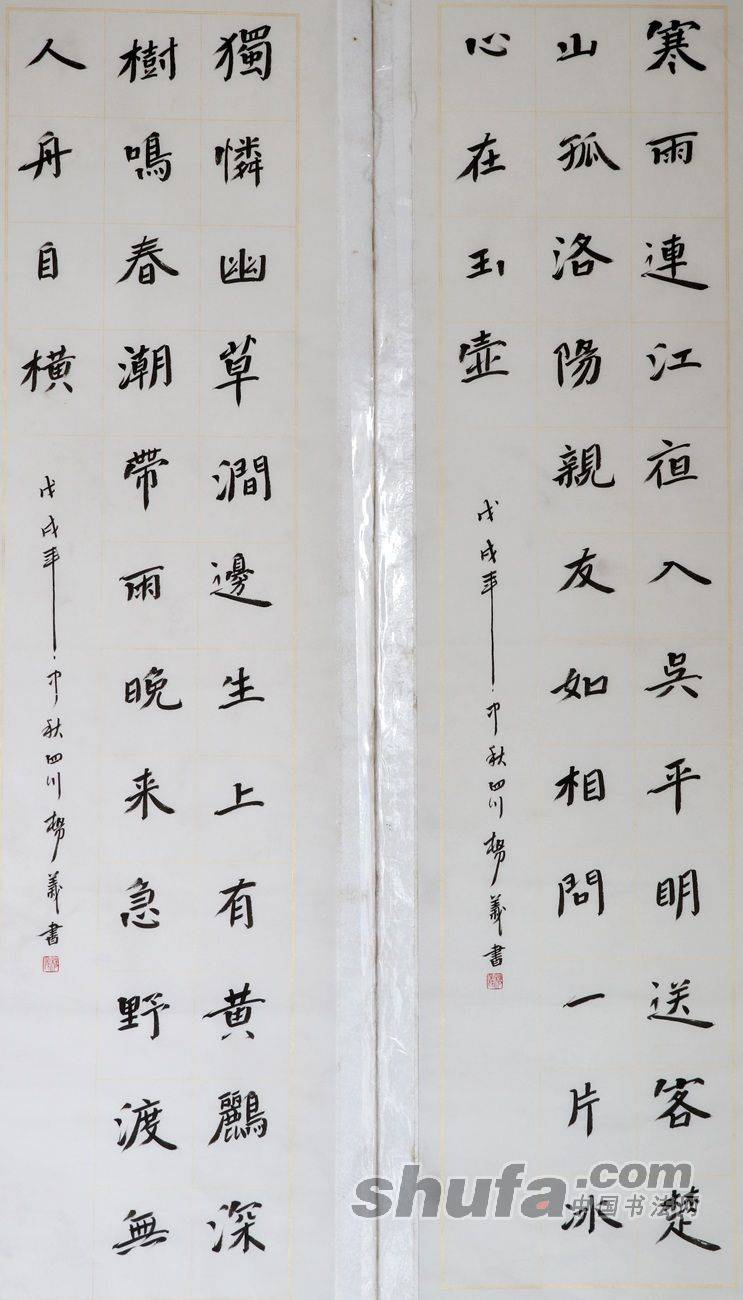 寒雨連江夜入吳平明送客楚
山孤洛陽親友如相問一片冰
心在玉壺
戊戌年中秋四川楊義書
獨憐幽草澗邊生上有黄鸝深
樹鳴春潮帶雨晚来急野渡無
人舟自横
戊戌年中秋四川楊義書
shufa.com
中国书法网